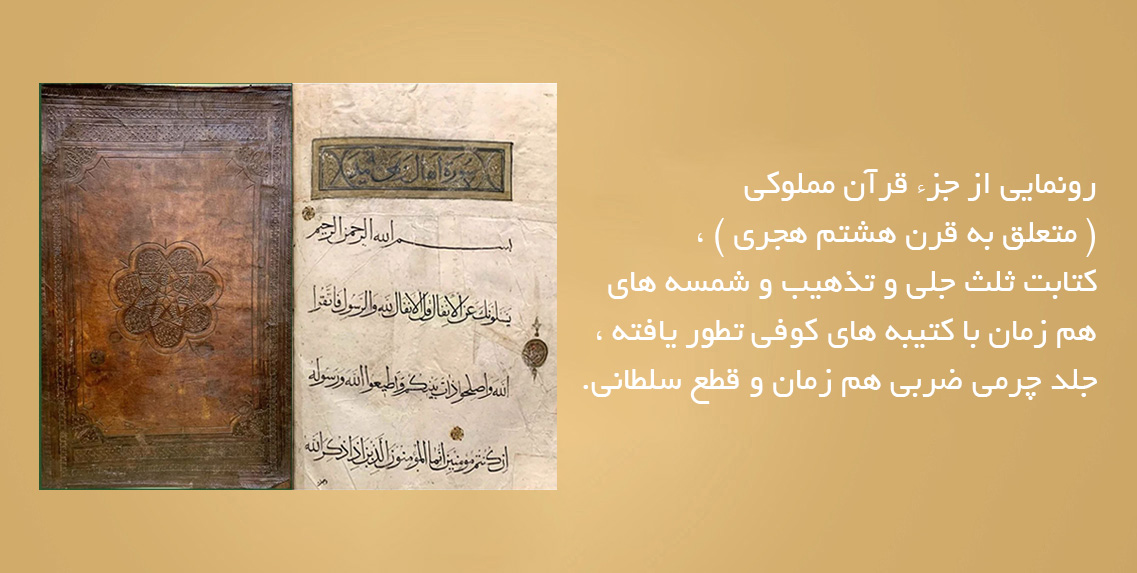 رونمایی از جزء قرآن مملوکی
( متعلق به قرن هشتم هجری ) ،
کتابت ثلث جلی و تذهیب و شمسه های
هم زمان با کتیبه های کوفی تطور یافته ،
جلد چرمی ضربی هم زمان و قطع سلطانی.
سورة انفال
بسم الله الرحمن الرحيم
يسلونك عن الانفال قل الانفال لله والرسول فاتقوا
الله واصلحوا ذات بينكم واطيعوا الله ورسوله
ان كنتم مومنين انما المومنون الذين اذا ذكر الله